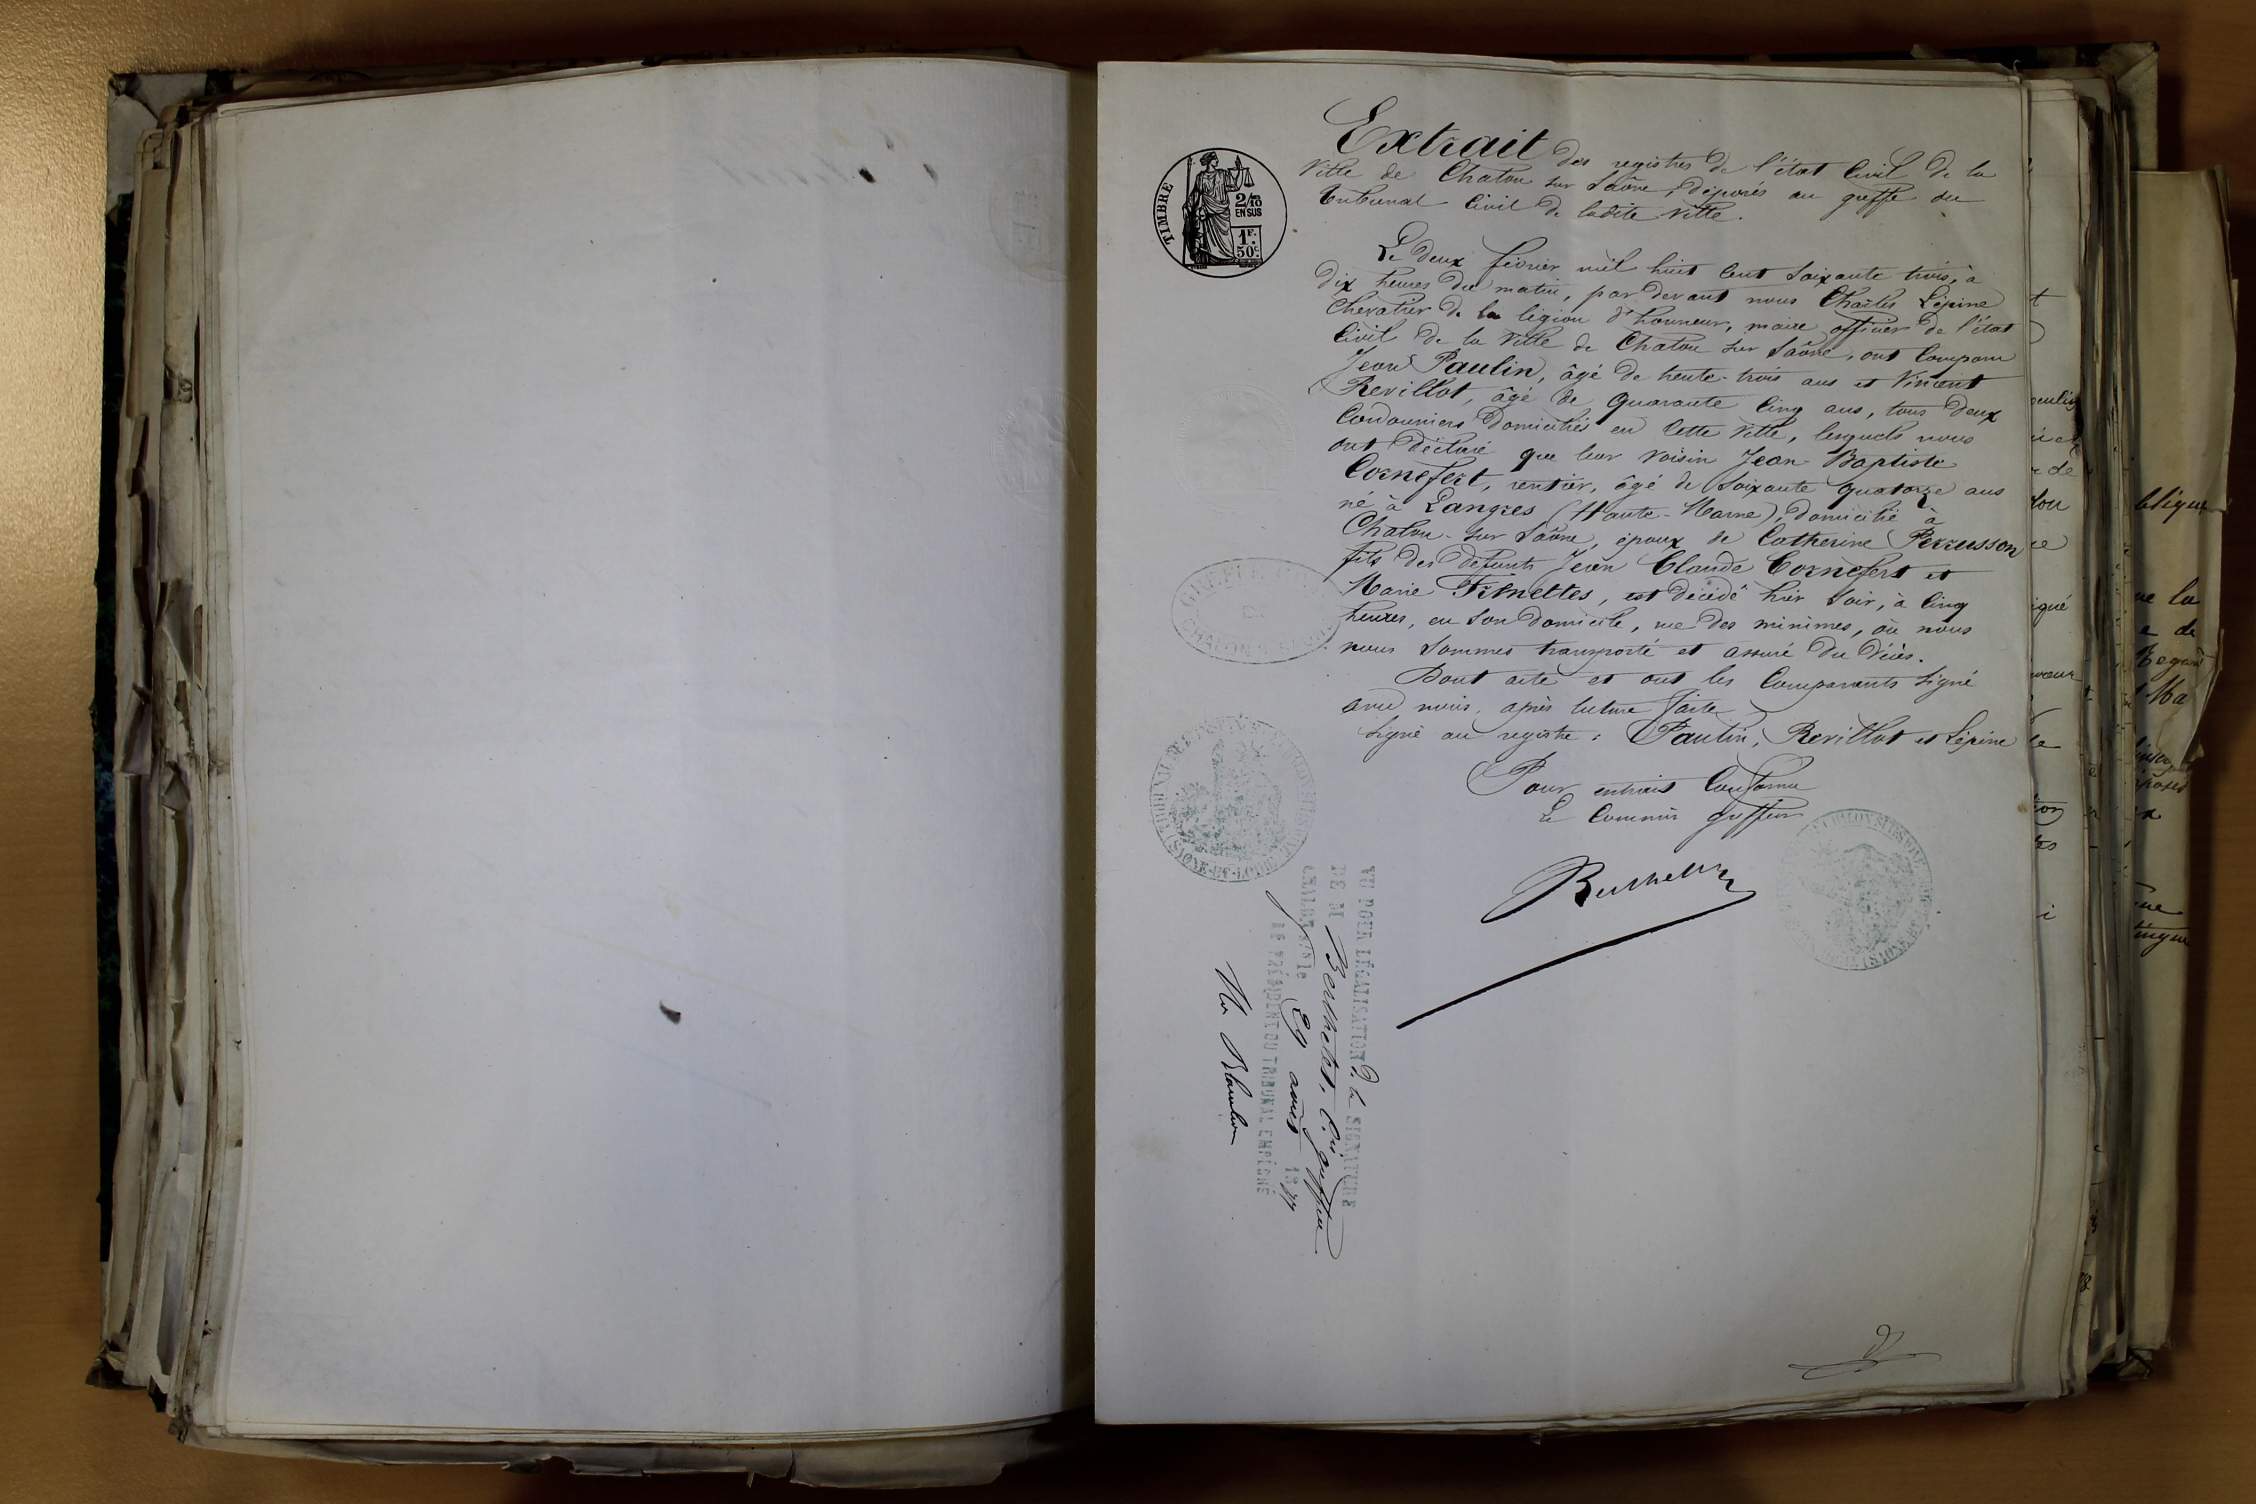 TIMBRE
2/10
EN SUS
1F.
50c.
Extrait des registres de l'état Civil de la
Ville de Chalon sur Saône, déposés au greffe du
Tribunal Civil de ladite Ville.
Le deux février mil huit cent soixante trois, à
dix heures du matin, par devant nous Charles Lépine
Chevalier de la légion d'honneur, maire officier de l'état
Civil de la Ville de Chalon sur Saône, ont comparu
Jean Paulin, âgé de trente-trois ans et Vincent
Revillot, âgé de quarante cinq ans, tous deux
Cordonniers domiciliés en cette Ville, lesquels nous
ont déclaré que leur voisin Jean-Baptiste
Cornefert, rentier, âgé de soixante quatorze ans
né à Langres (Haute-Marne), domicilié à
Chalon-sur Saône, époux de Catherine Perrusson
fils des défunts Jean Claude Cornefert et
Marie, est décédé hier soir, à cinq
heures, en son domicile, rue des minimes, où nous
nous sommes transporté et assuré du décès.
Dont acte et ont les Comparants signé
avec nous, après lecture faite
Signé au registre : Paulin, Revillot et Lépine
Pour extrait Conforme
Le Commis greffier
VU POUR LÉGALISATION de la SIGNATURE
DE M Berthelet, Cis greffier
CHALON S/S le 29 août 1877
LE PRÉSIDENT DU TRIBUNAL EMPÊCHÉ